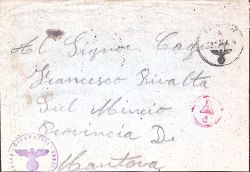 Al Signor Cagn
Francesco Rivalta
Sul Mincio
Provincia Di
Mantova